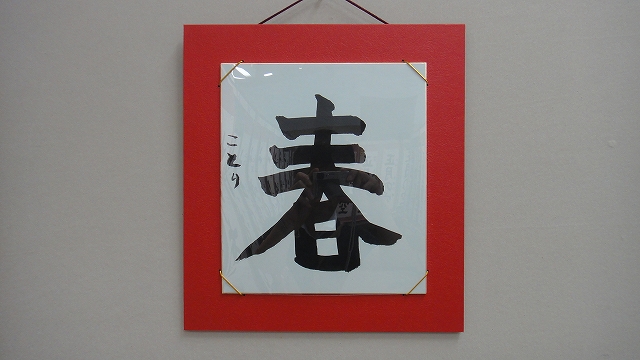 春
ことり